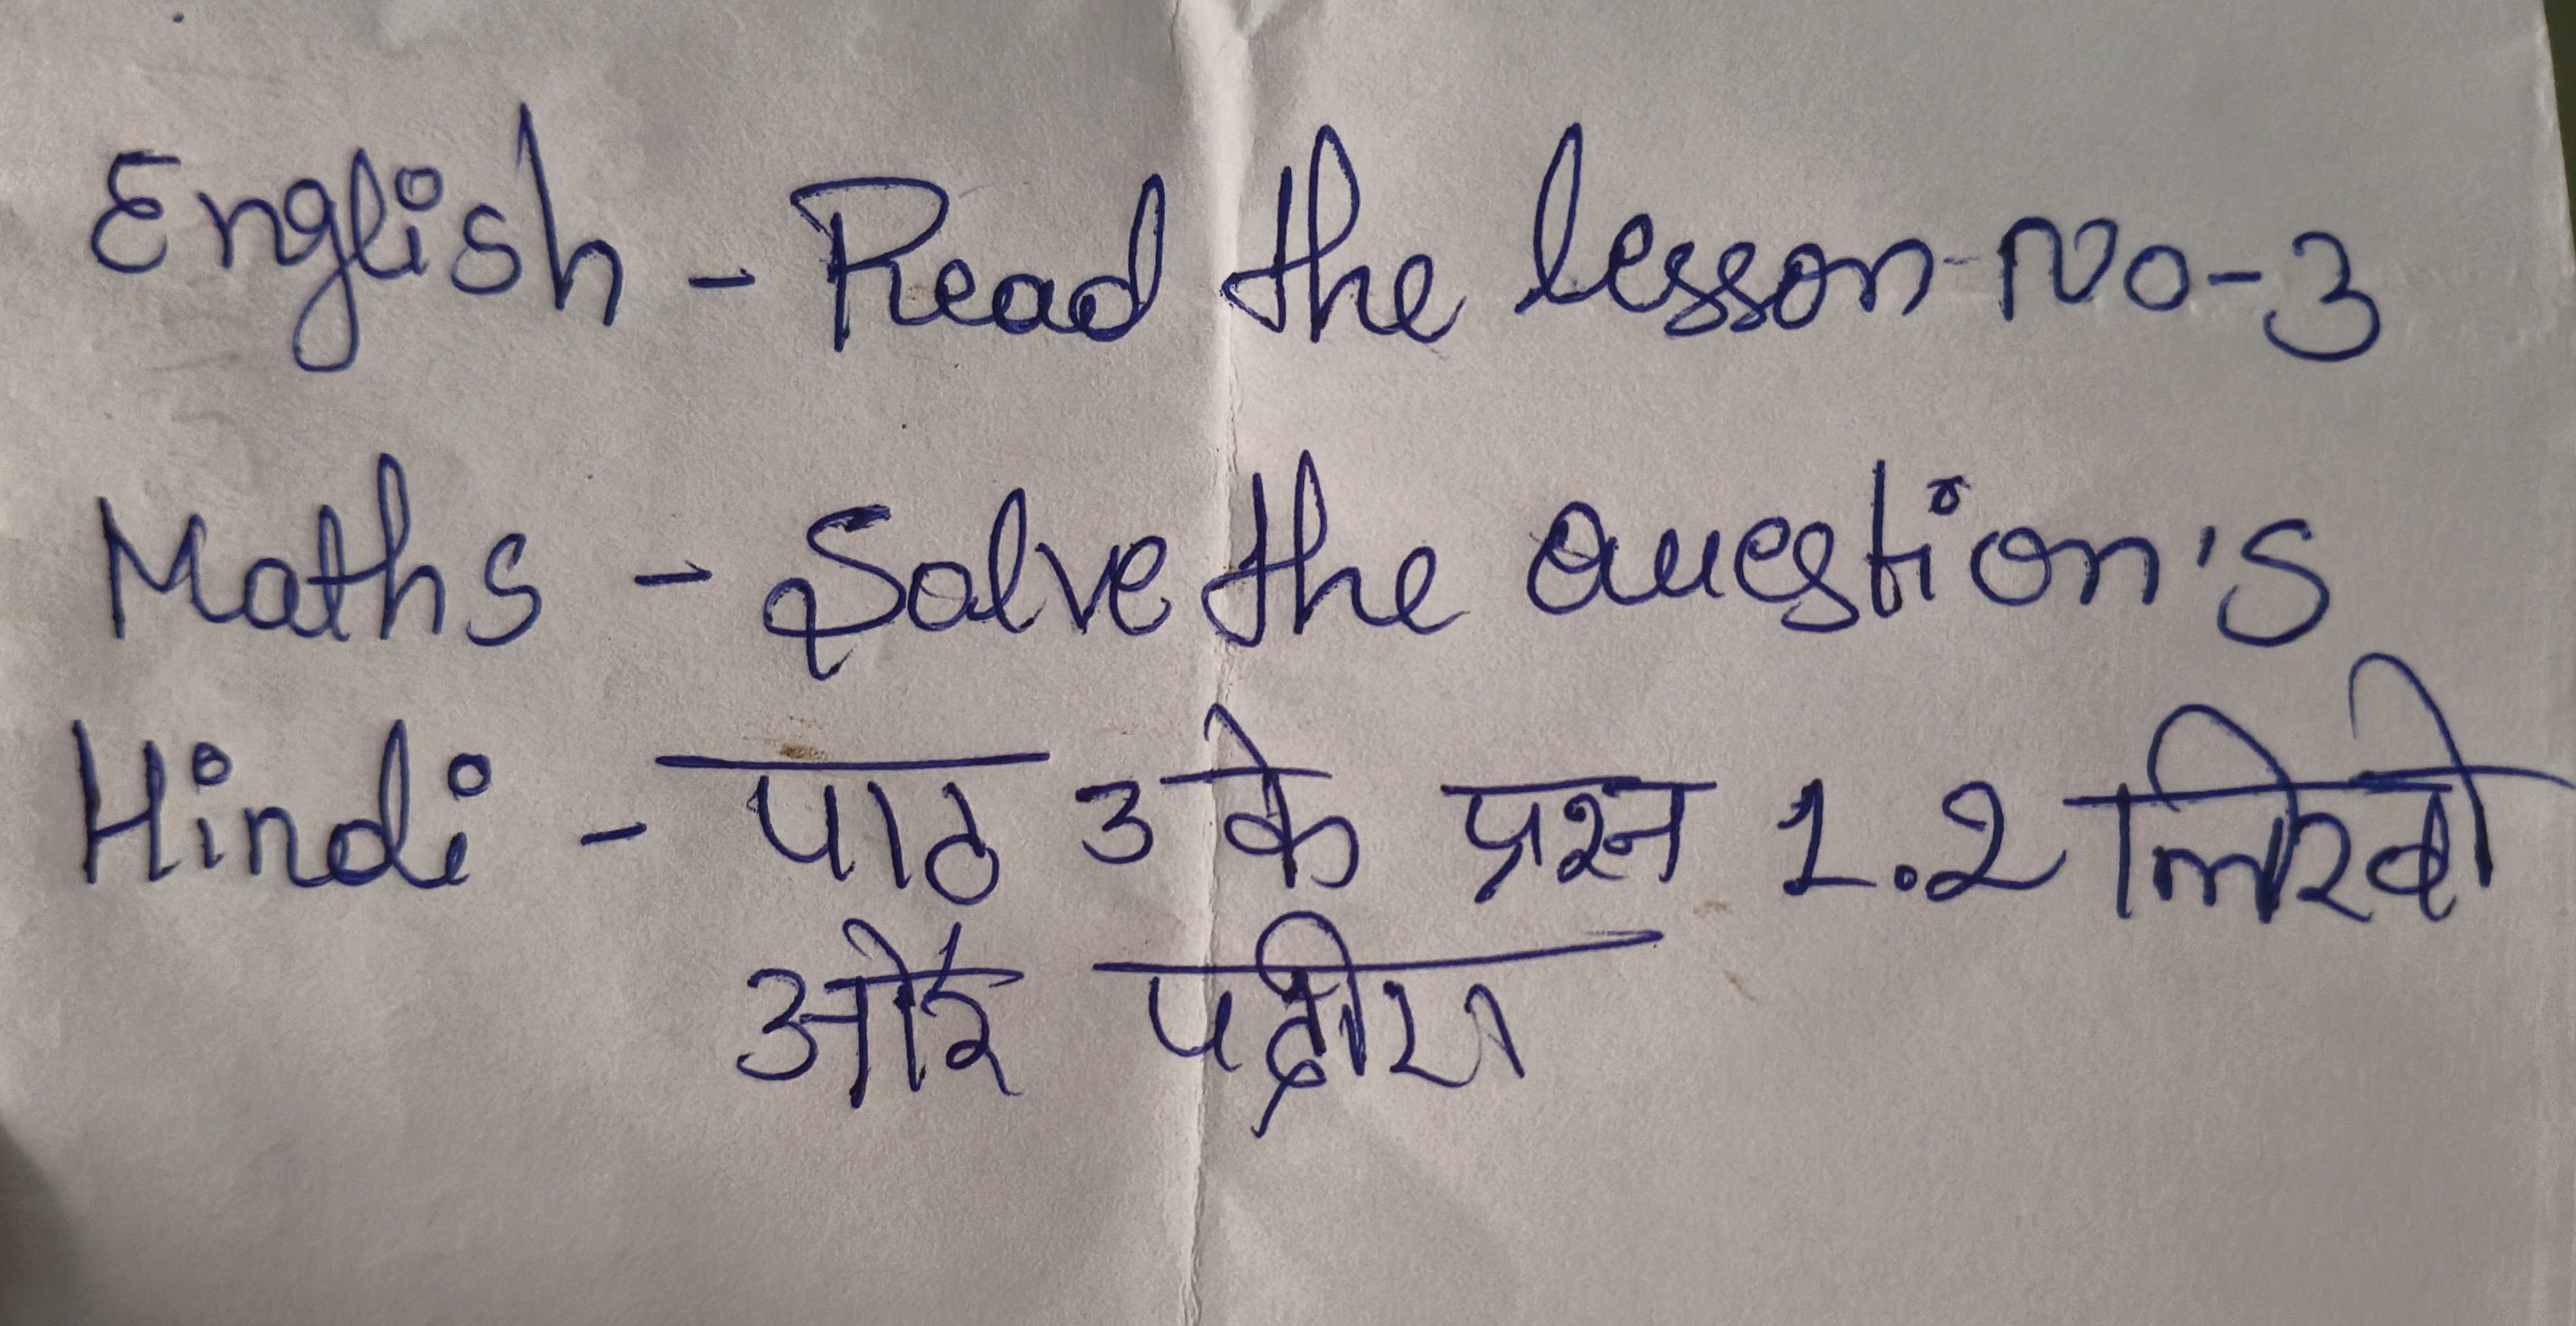 English - Read the lesson-No-3
Maths - Solve the Question's
Hindi - पाठ 3 के प्रश्न 1.2 लिखो
और